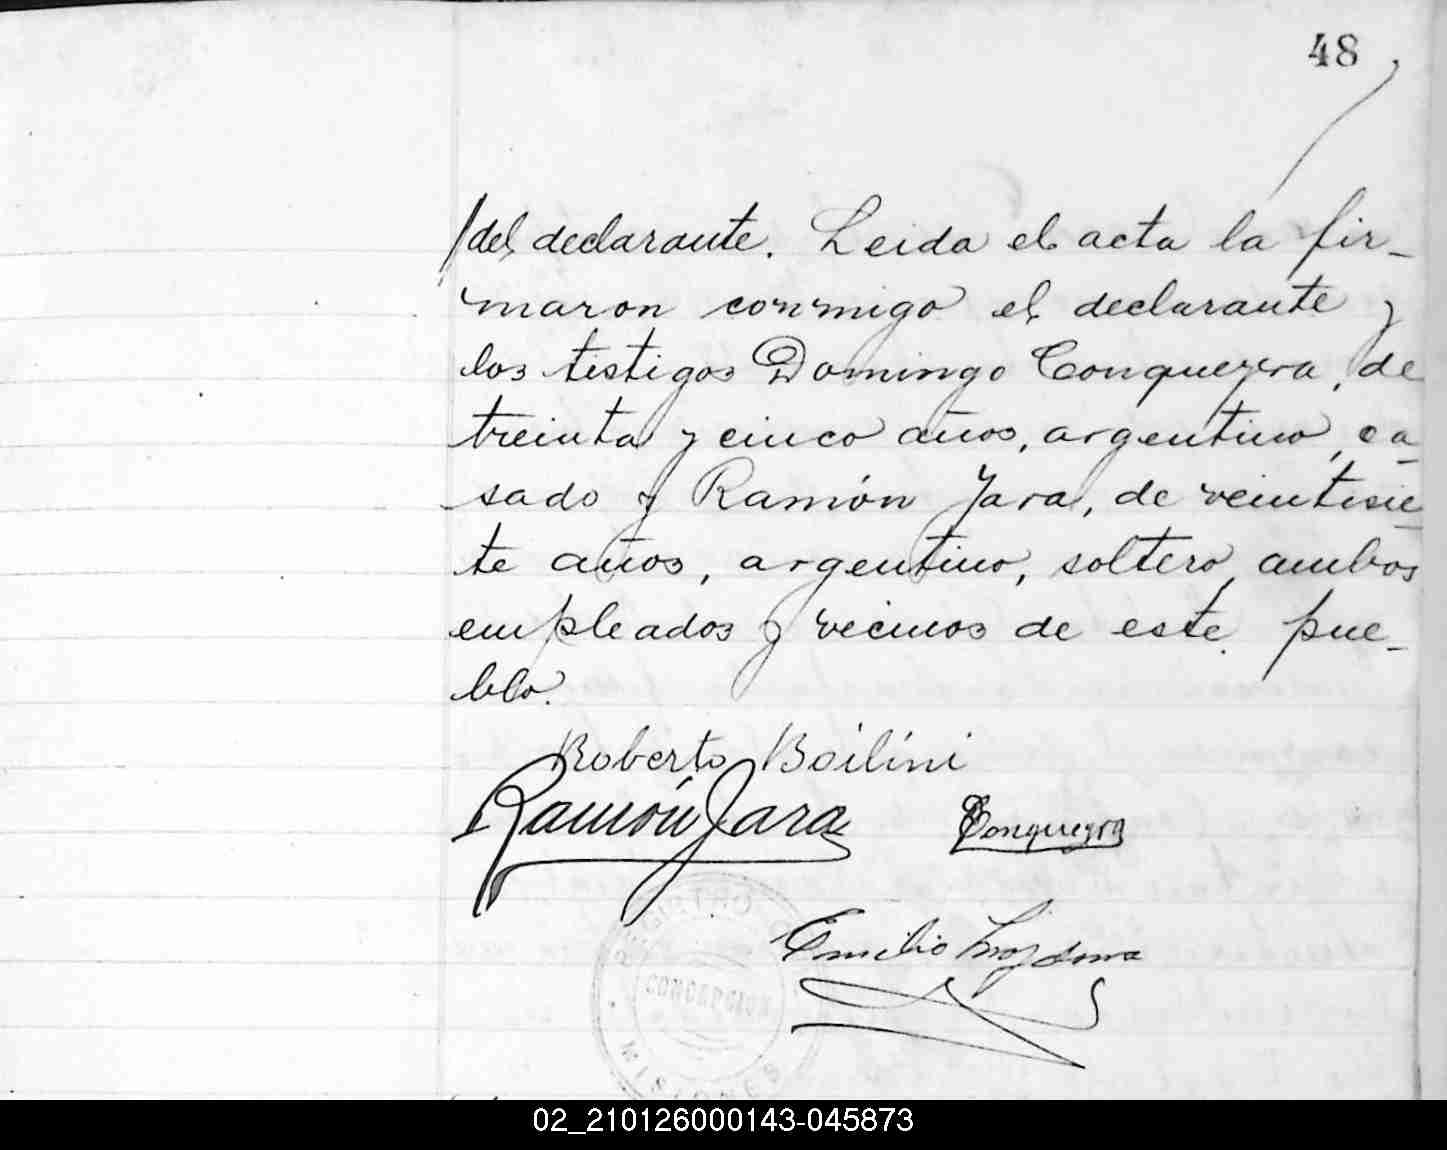 48
/del declarante. Leida el acta la fir-
maron conmigo el declarante y
los testigos Domingo Conquegra, de
treinta y cinco años, argentino, ca-
sado y Ramón Jara, de veintisie-
te años, argentino, soltero, ambos
empleados y vecinos de este pue-
blo.
Roberto Boilini
Ramón Jara
Conquegra
Emilio
REGISTRO
CONCEPCION
MISIONES
02_210126000143-045873